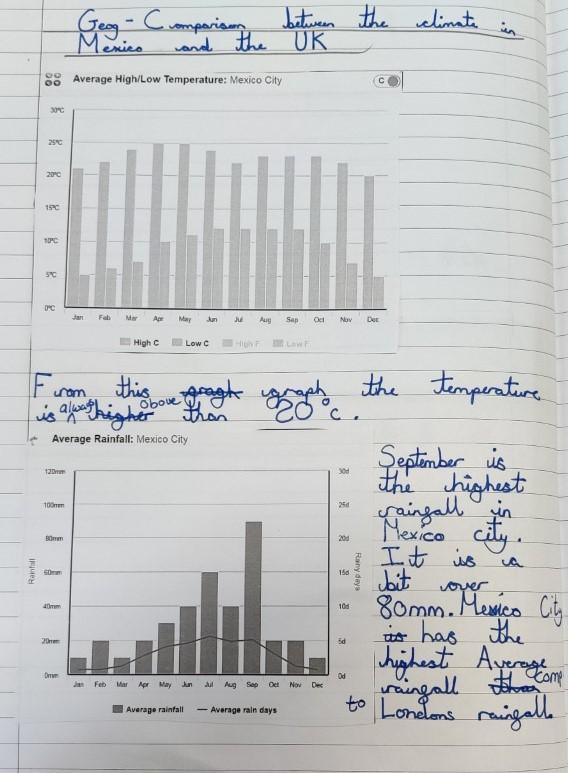 Geog - Comparison between the climate in
Mexico and the UK
Average High/Low Temperature: Mexico City
C
30°C
25°C
20°C
15°C
10°C
5°C
0°C
Jan Feb Mar Apr May Jun Jul Aug Sep Oct Nov Dec
High C Low C High F Low F
From this graph graph the temperature
is always higher above than 20°c.
Average Rainfall: Mexico City
120mm 30d
100mm 25d
80mm 20d
60mm 15d
40mm 10d
20mm 5d
0mm 0d
Rainfall
Rainy days
Jan Feb Mar Apr May Jun Jul Aug Sep Oct Nov Dec
Average rainfall Average rain days
September is
the highest
raingall in
Mexico city.
It is a
bit over
80mm. Mexico City
is has the
highest Average
raingall than comp
to Londons raingall.